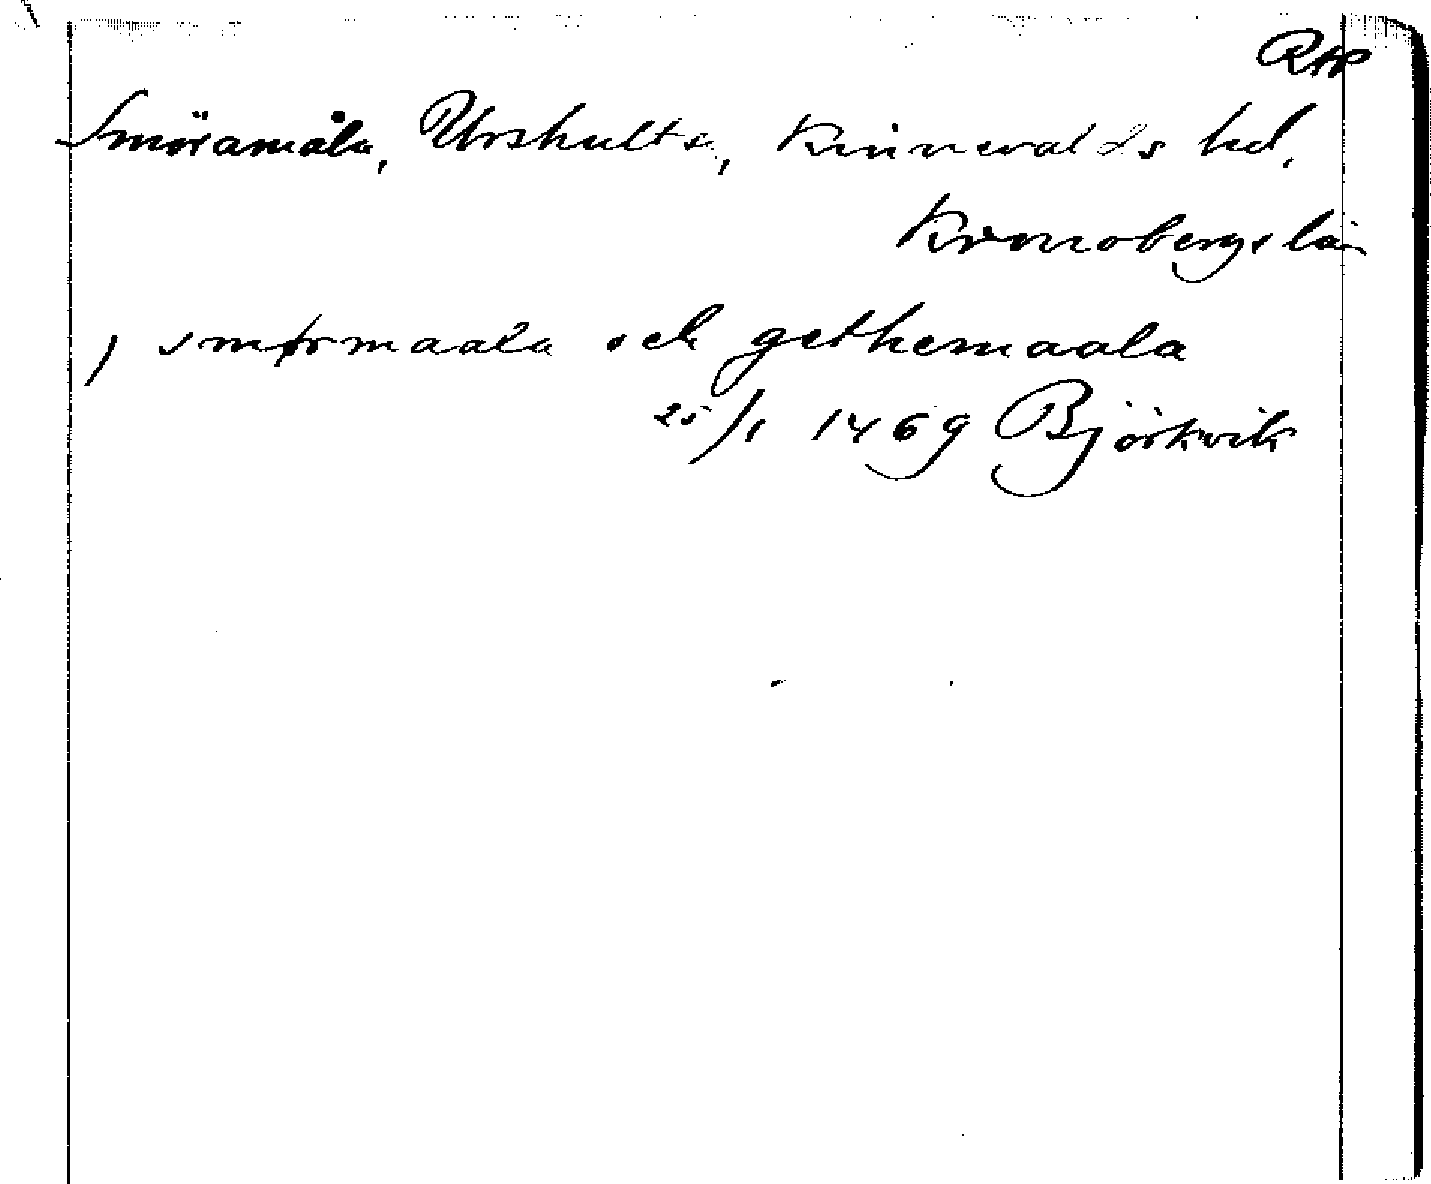 RAP
Smöramåla, Urshults s, Kinnevalds hd,
Kronobergs län
, smørmaala och gethemaala
25/1 1469 Björkvik